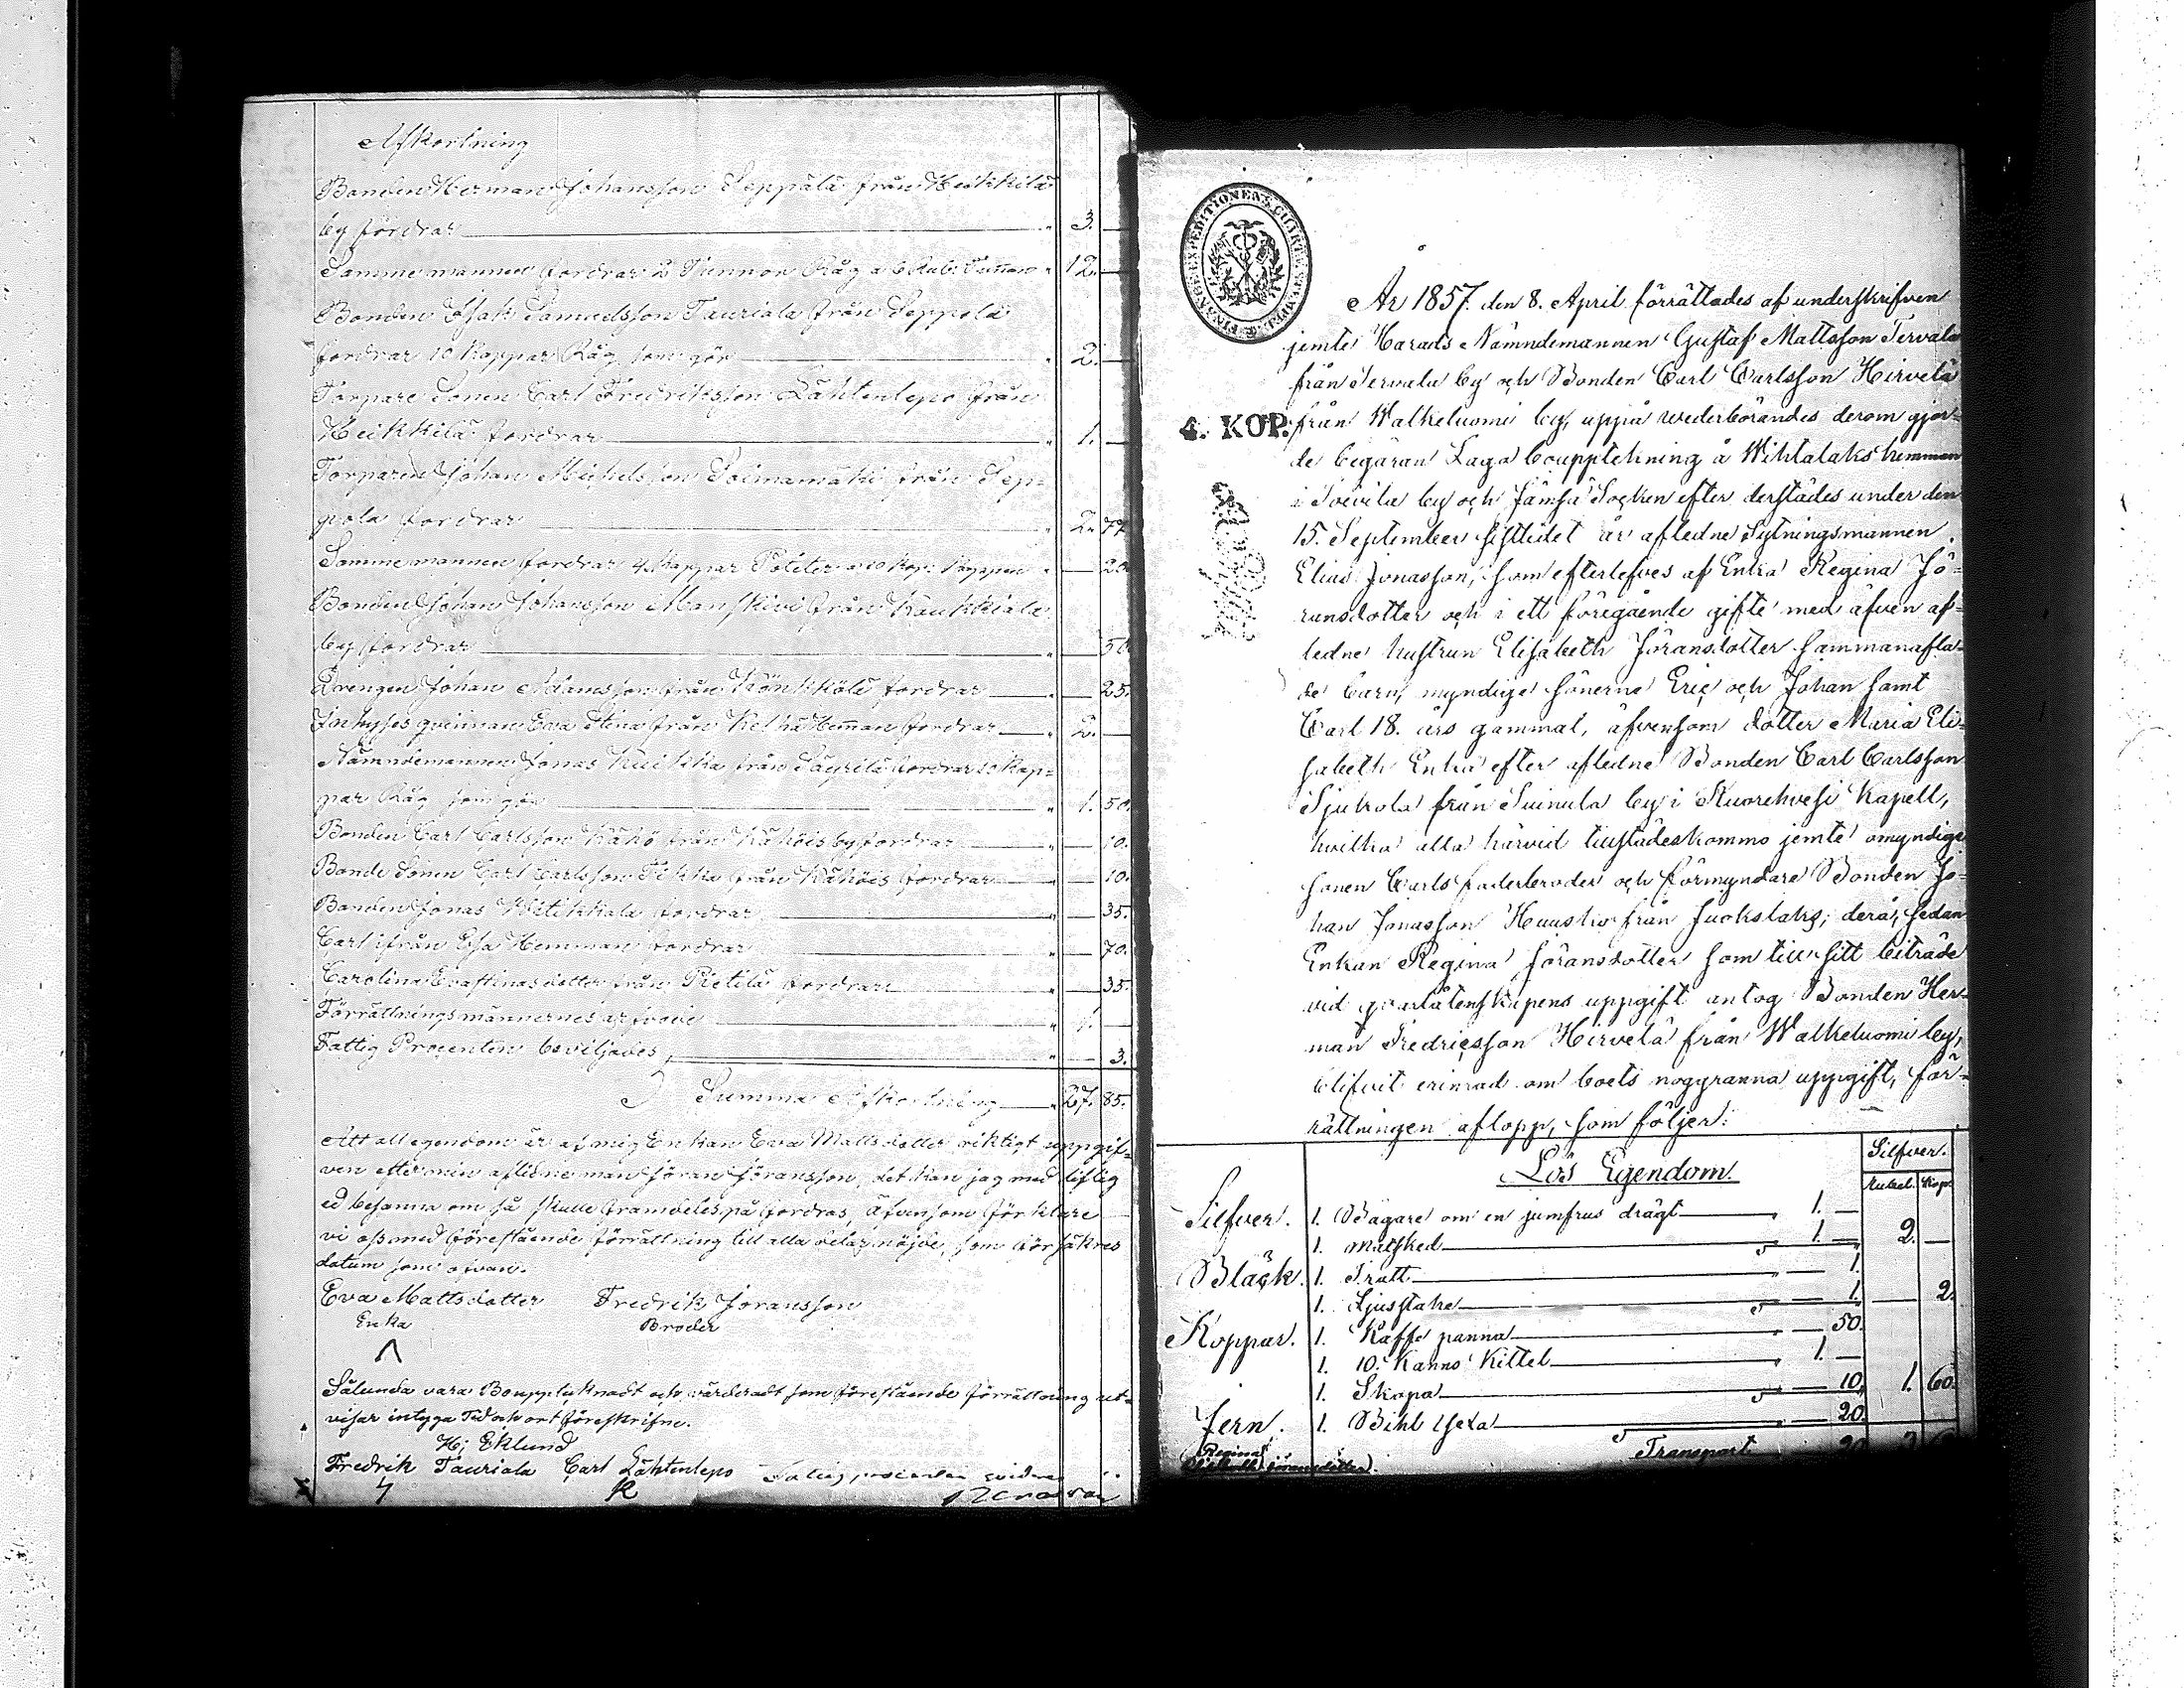 Afkortning
Bonden Herman Johansson Seppälä från Heikkilä
by fordrar 3.
Samme mannen fordrar 2 Tunnor Råg a 6 Rub: Tunnan 12.
Bonden Isak Samuelsson Tauriala från Seppola
fordrar 10 kappar Råg som gör 2.
Torpare Sonen Carl Fredriksson Lähtenlepo från
Heikkilä fordrar 1.
Torparen Johan Michelsson Soimamäki från Sep=
pola fordrar 2. 77
Samme mannen fordrar 4 kappar Poteter a 10 kop: kappen 20
Bonden Johan Johansson Manskivi från Kaukkiala
by fordrar 50
Drengen Johan Adamsson från Könkkölä fordrar 25.
Inhyses qvinnan Eva Stina från Kelhä Hemman fordrar 2.
Nämndemannen Jonas Kuikka från Säyrilä fordrar 10 kap=
par Råg som gör 1. 50
Bonden Carl Carlsson Kähö från Kähöis by fordrar 10.
Bonde Sonen Carl Carlsson Tikka från Kähöis fordrar 10.
Bonden Jonas Witikkala fordrar 35.
Carl ifrån Esa Hemman fordrar 70.
Carolina Evastinasdotter från Pietilä fordrar 35.
Förrättningsmännernes arfvode 1.
Fattig Procenten beviljades 3.
Summa Afkortning 27. 85.
Att all egendom är af mig Enkan Eva Mattsdotter riktigt uppgif=
ven efter min aflidne man Jöran Jöransson, det kan jag med liflig
ed besanna om så skulle framdeles på fordras, äfvensom förklare
vi oss med förestående förrättning till alla delar nöjde, som försäkres
datum som ofvan.
Eva Mattsdotter Fredrik Joransson
Enka Broder
Sålunda vara Bouppteknadt och värderadt som förestående förrättning ut=
visar intyga Tid och ort föreskrifne.
Hj Eklund
Fredrik Tauriala Carl Lähtenlepo
FINANCE EXPEDITIONENS CHARTÆ
4. KOP.
År 1857. den 8. April förrättades af underskrifven
jemte Harads Nämndemannen Gustaf Mattsson Tervala
från Tervala by och Bonden Carl Carlsson Hirvelä
från Walkeluomi by, uppå wederbörandes derom gjor=
de begäran Laga bouppteckning å Wihtalaks hemman
i Soivila by och Jämsä Socken efter derstädes under den
15. September sistledet år afledne Sytningsmannen
Elias Jonasson, som efterlefves af Enka Regina Jö=
ransdotter och i ett föregående gifte med äfven af=
ledne hustrun Elisabeth Jöransdotter sammanafla=
de barn, myndige sönerne Eric och Johan samt
Carl 18. års gammal, äfvensom dotter Maria Eli=
sabeth Enka efter afledne Bonden Carl Carlsson
Sjukola från Suinula by i Kuorehvesi Kapell,
hvilka alla härvid tillstädeskommo jemte omyndige
sonen Carls faderbroder och förmyndare Bonden Jo=
han Jonasson Huusko från Juokslaks; derå, sedan
Enkan Regina Jöransdotter som till sitt biträde
vid qvarlåtenskapens uppgift antog Bonden Her=
man Fredricsson Hirvelä från Walkeluomi by,
blifvit erinrad om boets noggranna uppgift, för=
rättningen aflopp, som följer:
Lös Egendom. Silfver.
Rubel. Kop.
Silfver. 1. Bägare om en jumfrus drägt 1.
1. Matsked 1. 2.
Bläck. 1. Tratt 1.
1. Ljusstake 1. 2.
Koppar. 1. Kaffe panna 50.
1. 10. Kanno Kittel 1.
1. Skopa 10. 1. 60.
Jern. 1. Bihl yxa 20.
Transport 20